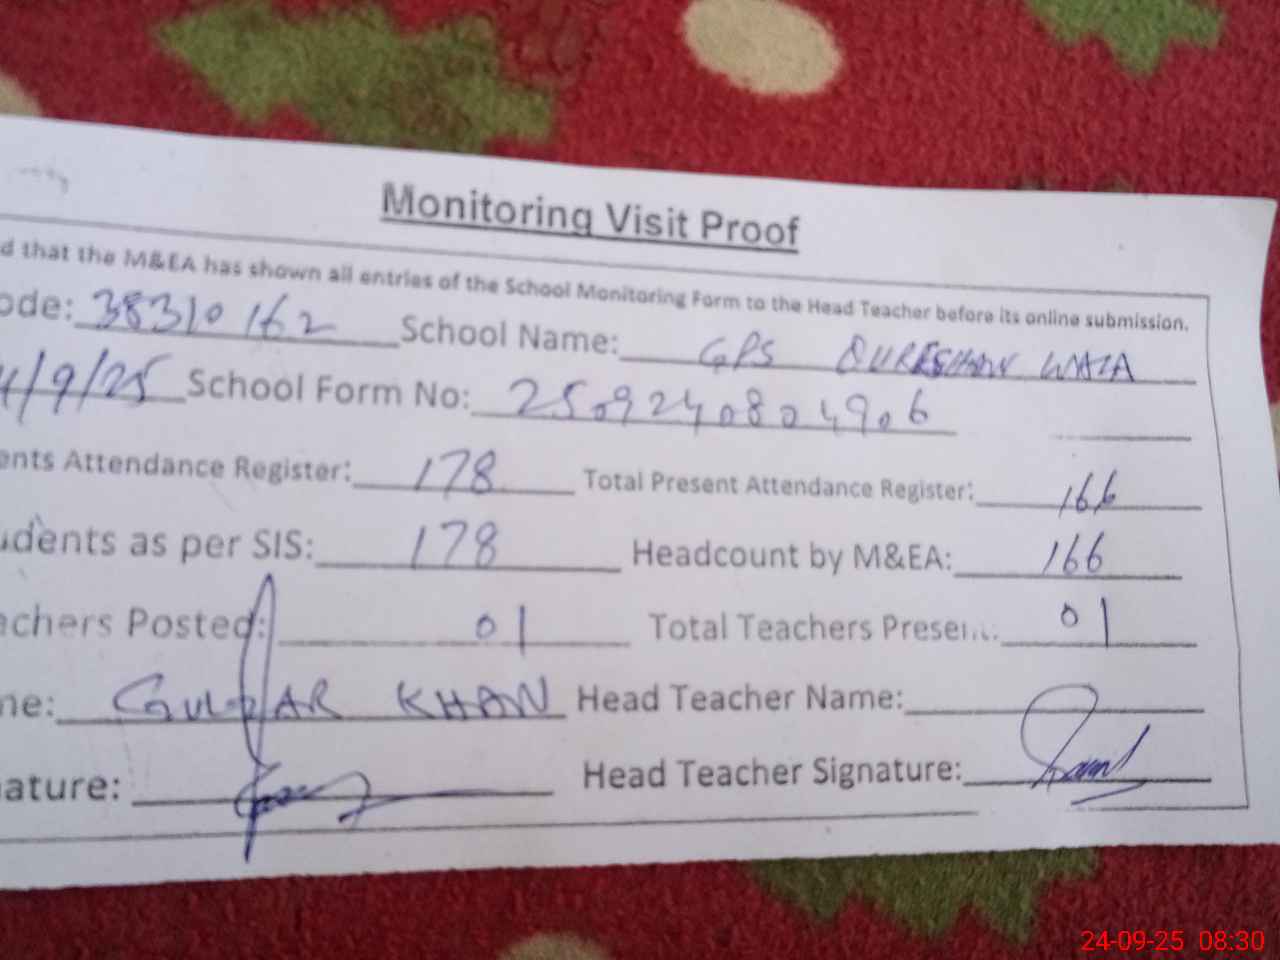 Monitoring Visit Proof
d that the M&EA has shown all entries of the School Monitoring Form to the Head Teacher before its online submission.
ode: 38310162 School Name: GPS QURESHAN WALA
4/9/25 School Form No: 2509240804906
ents Attendance Register: 178 Total Present Attendance Register: 166
udents as per SIS: 178 Headcount by M&EA: 166
achers Posted: 01 Total Teachers Present: 01
me: GULZAR KHAN Head Teacher Name:
ature: Head Teacher Signature:
24-09-25 08:30